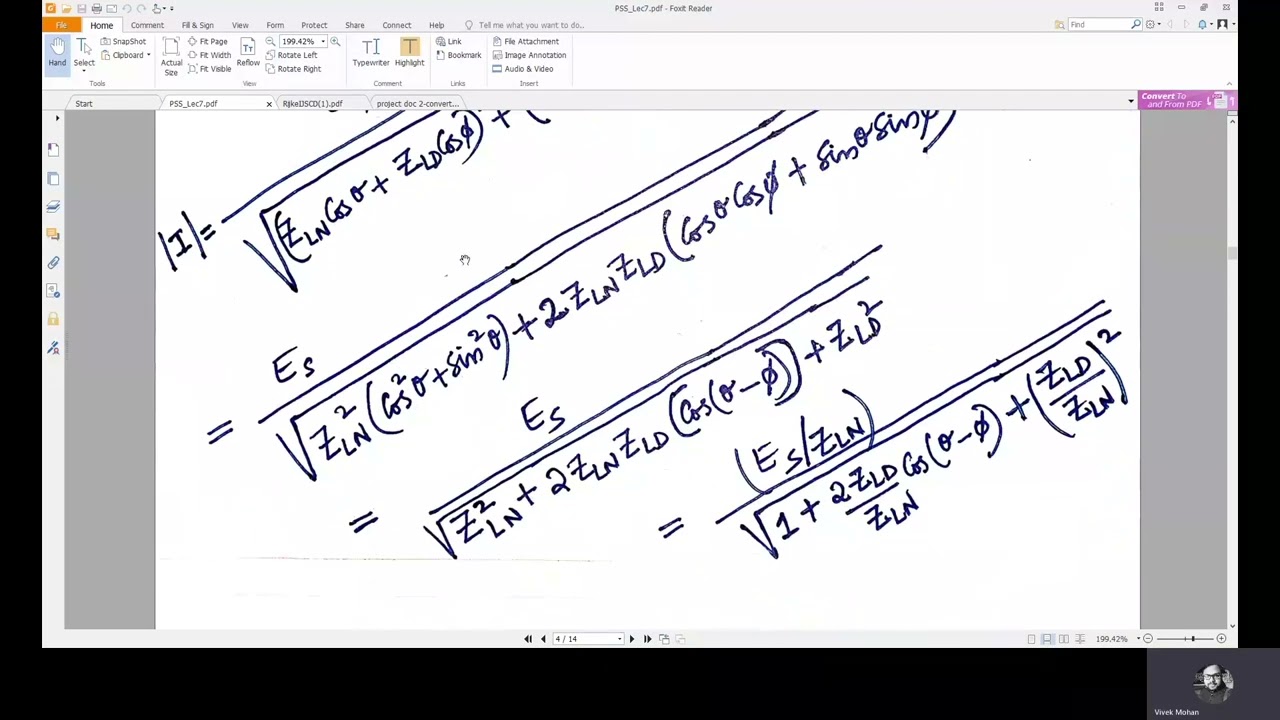 PSS_Lec7.pdf - Foxit Reader
File Home Comment Fill & Sign View Form Protect Share Connect Help Tell me what you want to do... Find
Hand Select SnapShot Clipboard Actual Size Fit Page Fit Width Fit Visible Reflow 199.42% Rotate Left Rotate Right Typewriter Highlight Link Bookmark File Attachment Image Annotation Audio & Video
Tools View Comment Links Insert
Start PSS_Lec7.pdf RijkeIJSCD(1).pdf project doc 2-convert... Convert To and From PDF
|I| = √(Z_LN Cosθ + Z_LD Cosϕ) + (
= E_S / √Z_LN² (Cos²θ + Sin²θ) + 2 Z_LN Z_LD (Cosθ Cosϕ + Sinθ Sinϕ)
= E_S / √Z²_LN + 2 Z_LN Z_LD (Cos(θ-ϕ)) + Z_LD²
= (E_S/Z_LN) / √1 + 2Z_LD/Z_LN Cos(θ-ϕ) + (Z_LD/Z_LN)²
4 / 14 199.42%
Vivek Mohan